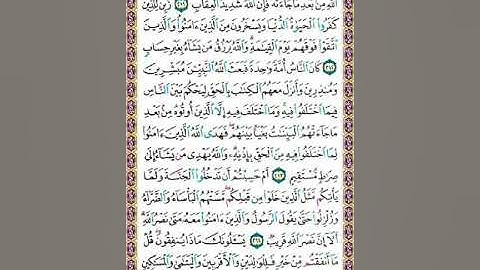 اللَّهِ مِنۢ بَعْدِ مَا جَآءَتْهُ فَإِنَّ اللَّهَ شَدِيدُ الْعِقَابِ ٢١١ زُيِّنَ لِلَّذِينَ
كَفَرُوا الْحَيَوٰةُ الدُّنْيَا وَيَسْخَرُونَ مِنَ الَّذِينَ ءَامَنُوا وَالَّذِينَ
اتَّقَوْا فَوْقَهُمْ يَوْمَ الْقِيَٰمَةِ وَاللَّهُ يَرْزُقُ مَن يَشَآءُ بِغَيْرِ حِسَابٍ
٢١٢ كَانَ النَّاسُ أُمَّةً وَٰحِدَةً فَبَعَثَ اللَّهُ النَّبِيِّـۧنَ مُبَشِّرِينَ
وَمُنذِرِينَ وَأَنزَلَ مَعَهُمُ الْكِتَٰبَ بِالْحَقِّ لِيَحْكُمَ بَيْنَ النَّاسِ
فِيمَا اخْتَلَفُوا فِيهِ وَمَا اخْتَلَفَ فِيهِ إِلَّا الَّذِينَ أُوتُوهُ مِنۢ بَعْدِ
مَا جَآءَتْهُمُ الْبَيِّنَٰتُ بَغْيًۢا بَيْنَهُمْ فَهَدَى اللَّهُ الَّذِينَ ءَامَنُوا
لِمَا اخْتَلَفُوا فِيهِ مِنَ الْحَقِّ بِإِذْنِهِۦ وَاللَّهُ يَهْدِى مَن يَشَآءُ إِلَىٰ
صِرَٰطٍ مُّسْتَقِيمٍ ٢١٣ أَمْ حَسِبْتُمْ أَن تَدْخُلُوا الْجَنَّةَ وَلَمَّا
يَأْتِكُم مَّثَلُ الَّذِينَ خَلَوْا مِن قَبْلِكُم مَّسَّتْهُمُ الْبَأْسَآءُ وَالضَّرَّآءُ
وَزُلْزِلُوا حَتَّىٰ يَقُولَ الرَّسُولُ وَالَّذِينَ ءَامَنُوا مَعَهُۥ مَتَىٰ نَصْرُ اللَّهِ
أَلَآ إِنَّ نَصْرَ اللَّهِ قَرِيبٌ ٢١٤ يَسْـَٔلُونَكَ مَاذَا يُنفِقُونَ قُلْ
مَآ أَنفَقْتُم مِّنْ خَيْرٍ فَلِلْوَٰلِدَيْنِ وَالْأَقْرَبِينَ وَالْيَتَٰمَىٰ وَالْمَسَٰكِينِ